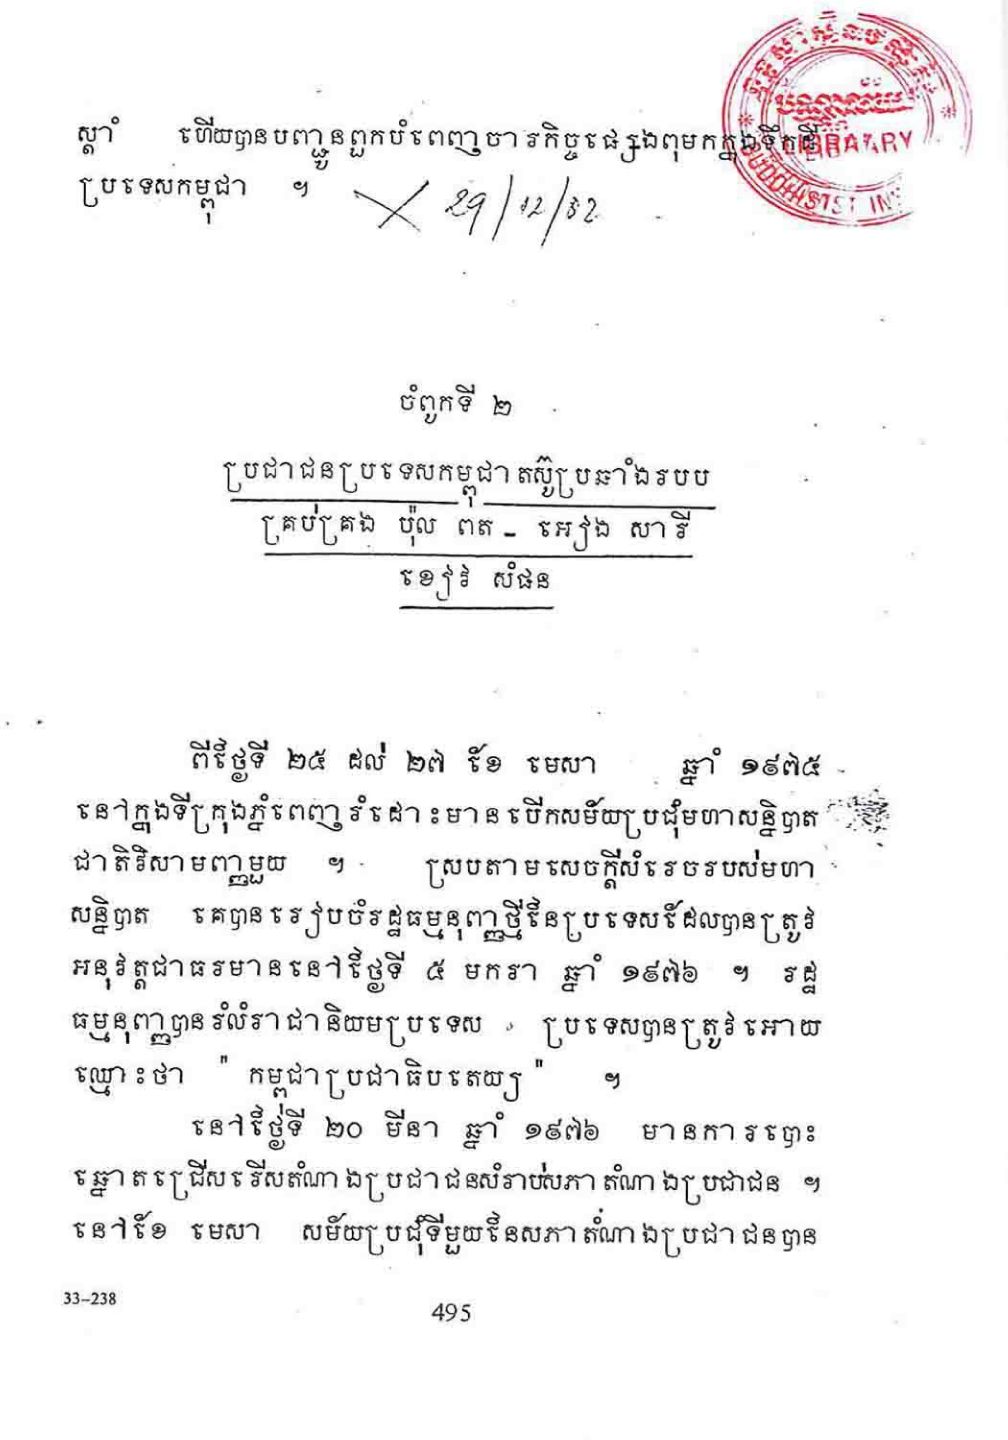 ស្តាំ ហើយបានបញ្ជូនពួកបំពេញចារកិច្ចផ្សេងពុមកក្នុងទឹកដី
ប្រទេសកម្ពុជា ។ 29/12/82
LIBRARY
BUDDHIST INS
ចំពូកទី ២
ប្រជាជនប្រទេសកម្ពុជាតស៊ូប្រឆាំងរបប
គ្រប់គ្រង ប៉ុល ពត - អៀង សារី
ខៀវ សំផន
ពីថ្ងៃទី ២៥ ដល់ ២៧ ខែ មេសា ឆ្នាំ ១៩៧៥
នៅក្នុងទីក្រុងភ្នំពេញរំដោះមានបើកសម័យប្រជុំមហាសន្និបាត
ជាតិវិសាមញ្ញមួយ ។ ស្របតាមសេចក្តីសំរេចរបស់មហា
សន្និបាត គេបានរៀបចំរដ្ឋធម្មនុញ្ញថ្មីនៃប្រទេសដែលបានត្រូវ
អនុវត្តជាធរមាននៅថ្ងៃទី ៥ មករា ឆ្នាំ ១៩៧៦ ។ រដ្ឋ
ធម្មនុញ្ញបានរំលំរាជានិយមប្រទេស , ប្រទេសបានត្រូវអោយ
ឈ្មោះថា " កម្ពុជាប្រជាធិបតេយ្យ " ។
នៅថ្ងៃទី ២០ មីនា ឆ្នាំ ១៩៧៦ មានការបោះ
ឆ្នោតជ្រើសរើសតំណាងប្រជាជនសំរាប់សភាតំណាងប្រជាជន ។
នៅខែ មេសា សម័យប្រជុំទីមួយនៃសភាតំណាងប្រជាជនបាន
33-238
495